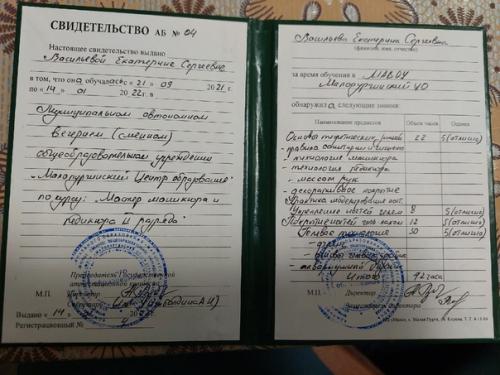 СВИДЕТЕЛЬСТВО АБ № 04
Настоящее свидетельство выдано
Васильевой Екатерине Сергеевне
в том, что она обучалась с «21» 09 2021 г.
по «14» 01 2022 г. в
Муниципальном автономном
вечернем (сменном)
общеобразовательном учреждении
"Малопургинский Центр образования"
по курсу: Мастер маникюра и
педикюра II разряда"
Председатель Государственной
аттестационной комиссии
М.П. Директор
Секретарь
Выдано «14»
Регистрационный №
Васильева Екатерина Сергеевна
(фамилия, имя, отчество)
за время обучения в МАВОУ
Малопургинский ЦО
обнаружила следующие знания:
Наименование предметов Объем часов Оценка
Основы теоретических знаний 22 5(отлично)
- правила санитарии и гигиены
- технология маникюра
- технология педикюра
- массаж рук
- декоративное покрытие
Практика моделирования ногт.
Укрепление ногтей гелем 8 5(отлично)
ногтей 12 5(отлично)
Гелевые технологии 30 5(отлично)
Итого 72 часа
М.П. Директор